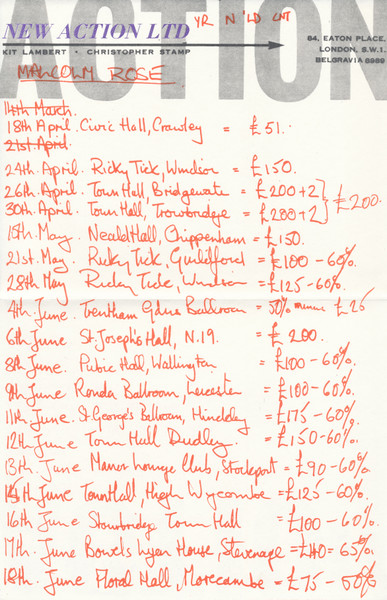 ACTION
YR N 'LD CNT
NEW ACTION LTD
KIT LAMBERT • CHRISTOPHER STAMP
84, EATON PLACE,
LONDON, S.W.1.
BELGRAVIA 8989
MALCOLM ROSE
14th March.
18th April. Civic Hall, Crawley = £51.
21st April.
24th April. Ricky Tick, Windsor = £150.
26th April. Town Hall, Bridgewate = £200+2
30th April. Town Hall, Trowbridge = £200+2 } = £200.
15th May. Neald Hall, Chippenham = £150.
21st. May. Ricky Tick, Guildford = £100-60%.
28th May Ricky Tick, Windsor = £125-60%.
4th June. Trentham Gdns Ballroom = 50% minus £25
6th June St. Joseph's Hall, N.19. = £200.
8th June. Public Hall, Wallington = £100-60%.
9th June Ronda Ballroom, Leicester = £100-60%.
11th June. St George's Ballroom, Hinckley = £175-60%.
12th June Town Hall Dudley. = £150-60%.
13th. June Manor Lounge Club, Stockport = £90-60%.
15th June Town Hall, High Wycombe = £125-60%.
16th June Stourbridge Town Hall = £100-60%.
17th. June Bowes Lyon House, Stevenage = £140=65%.
18th. June Floral Hall, Morecambe = £75-50%